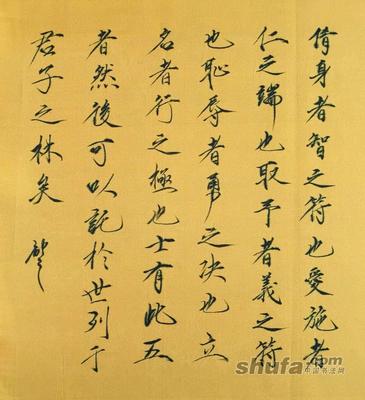 脩身者智之符也愛施者
仁之端也取予者義之符
也恥辱者勇之决也立
名者行之極也士有此五
者然後可以託於世列于
君子之林矣
shufa.com
中国书法网